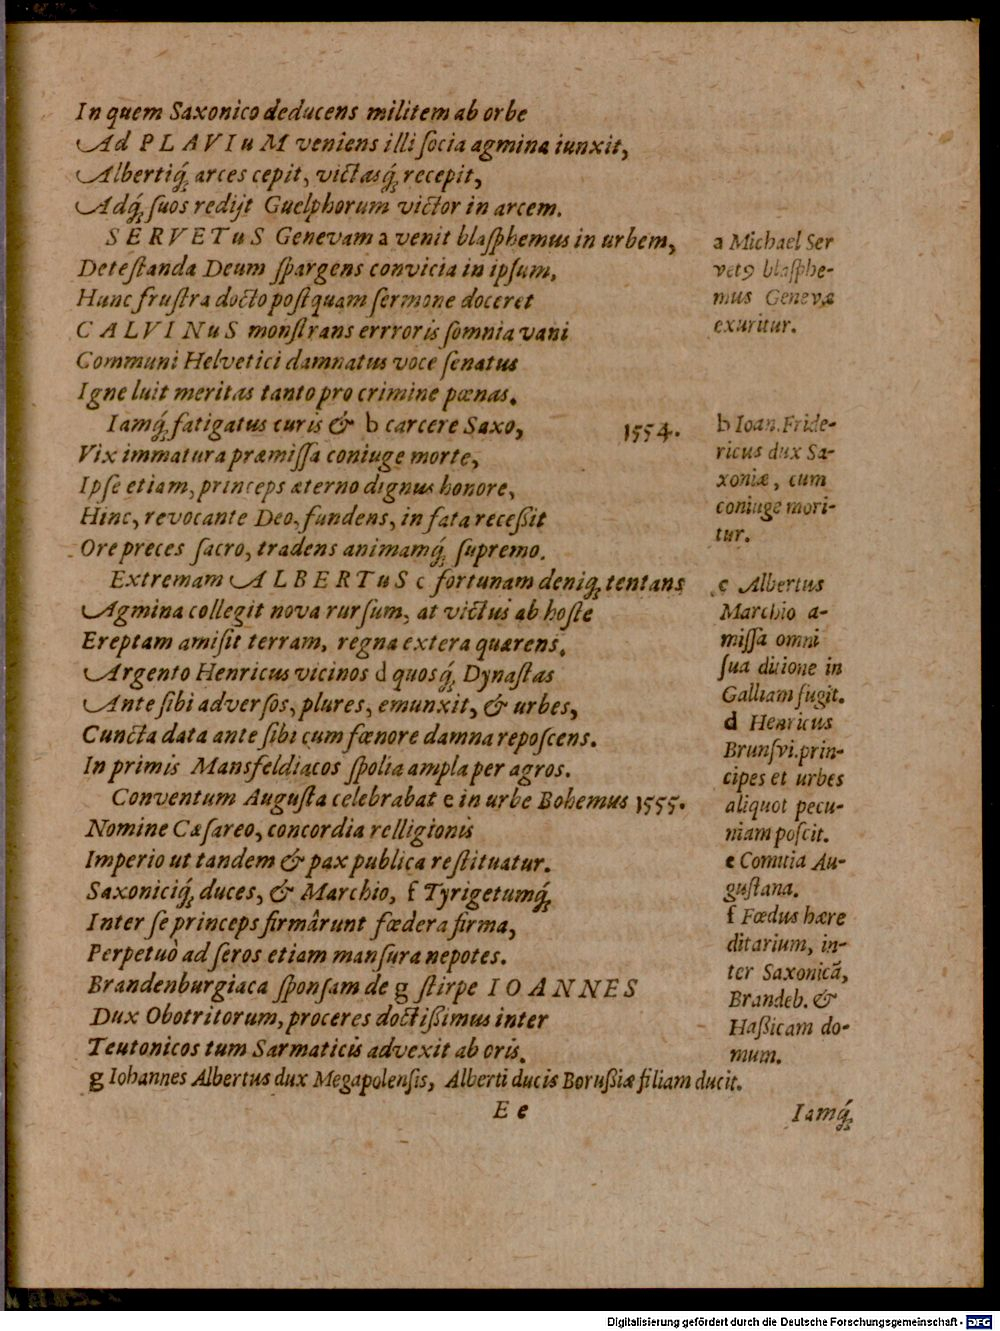 In quem Saxonico deducens militem ab orbe
Ad PLAVIuM veniens illi ſocia agmina iunxit,
Albertiq́ꝫ arces cepit, victasq́ꝫ recepit,
Adq́ꝫ ſuos redijt Guelphorum victor in arcem.
SERVETuS Genevam a venit blaſphemus in urbem,
Deteſtanda Deum ſpargens convicia in ipſum,
Hunc fruſtra docto poſtquam ſermone doceret
CALVINuS monſtrans errroris ſomnia vani
Communi Helvetici damnatus voce ſenatus
Igne luit meritas tanto pro crimine pœnas.
a Michael Ser
vetꝰ blaſphe-
mus Genevæ
exuritur.
Iamq́ꝫ fatigatus curis & b carcere Saxo, 1554.
Vix immatura præmiſſa coniuge morte,
Ipſe etiam, princeps æterno dignus honore,
Hinc, revocante Deo, fundens, in fata receßit
Ore preces ſacro, tradens animamq́ꝫ ſupremo.
b Ioan. Fride-
ricus dux Sa-
xoniæ, cum
coniuge mori-
tur.
Extremam ALBERTuS c fortunam deniqꝫ tentans
Agmina collegit nova rurſum, at victus ab hoſte
Ereptam amiſit terram, regna extera quærens.
Argento Henricus vicinos d quosq́ꝫ Dynaſtas
Ante ſibi adverſos, plures, emunxit, & urbes,
Cuncta data ante ſibi cum fœnore damna repoſcens.
In primis Mansfeldiacos ſpolia ampla per agros.
c Albertus
Marchio a-
miſſa omni
ſua ditione in
Galliam fugit.
d Henricus
Brunſvi. prin-
cipes et urbes
aliquot pecu-
niam poſcit.
Conventum Auguſta celebrabat e in urbe Bohemus 1555.
Nomine Cæſareo, concordia relligionis
Imperio ut tandem & pax publica reſtituatur.
Saxoniciq́ꝫ duces, & Marchio, f Tyrigetumq́ꝫ
Inter ſe princeps firmârunt fœdera firma,
Perpetuò ad ſeros etiam manſura nepotes.
Brandenburgiaca ſponſam de g ſtirpe IOANNES
Dux Obotritorum, proceres doctißimus inter
Teutonicos tum Sarmaticis advexit ab oris.
e Comitia Au-
guſtana.
f Fœdus hære
ditarium, in-
ter Saxonicã,
Brandeb. &
Haßicam do-
mum.
g Iohannes Albertus dux Megapolenſis, Alberti ducis Borußiæ filiam ducit.
E e
Iamq́ꝫ
Digitalisierung gefördert durch die Deutsche Forschungsgemeinschaft - DFG